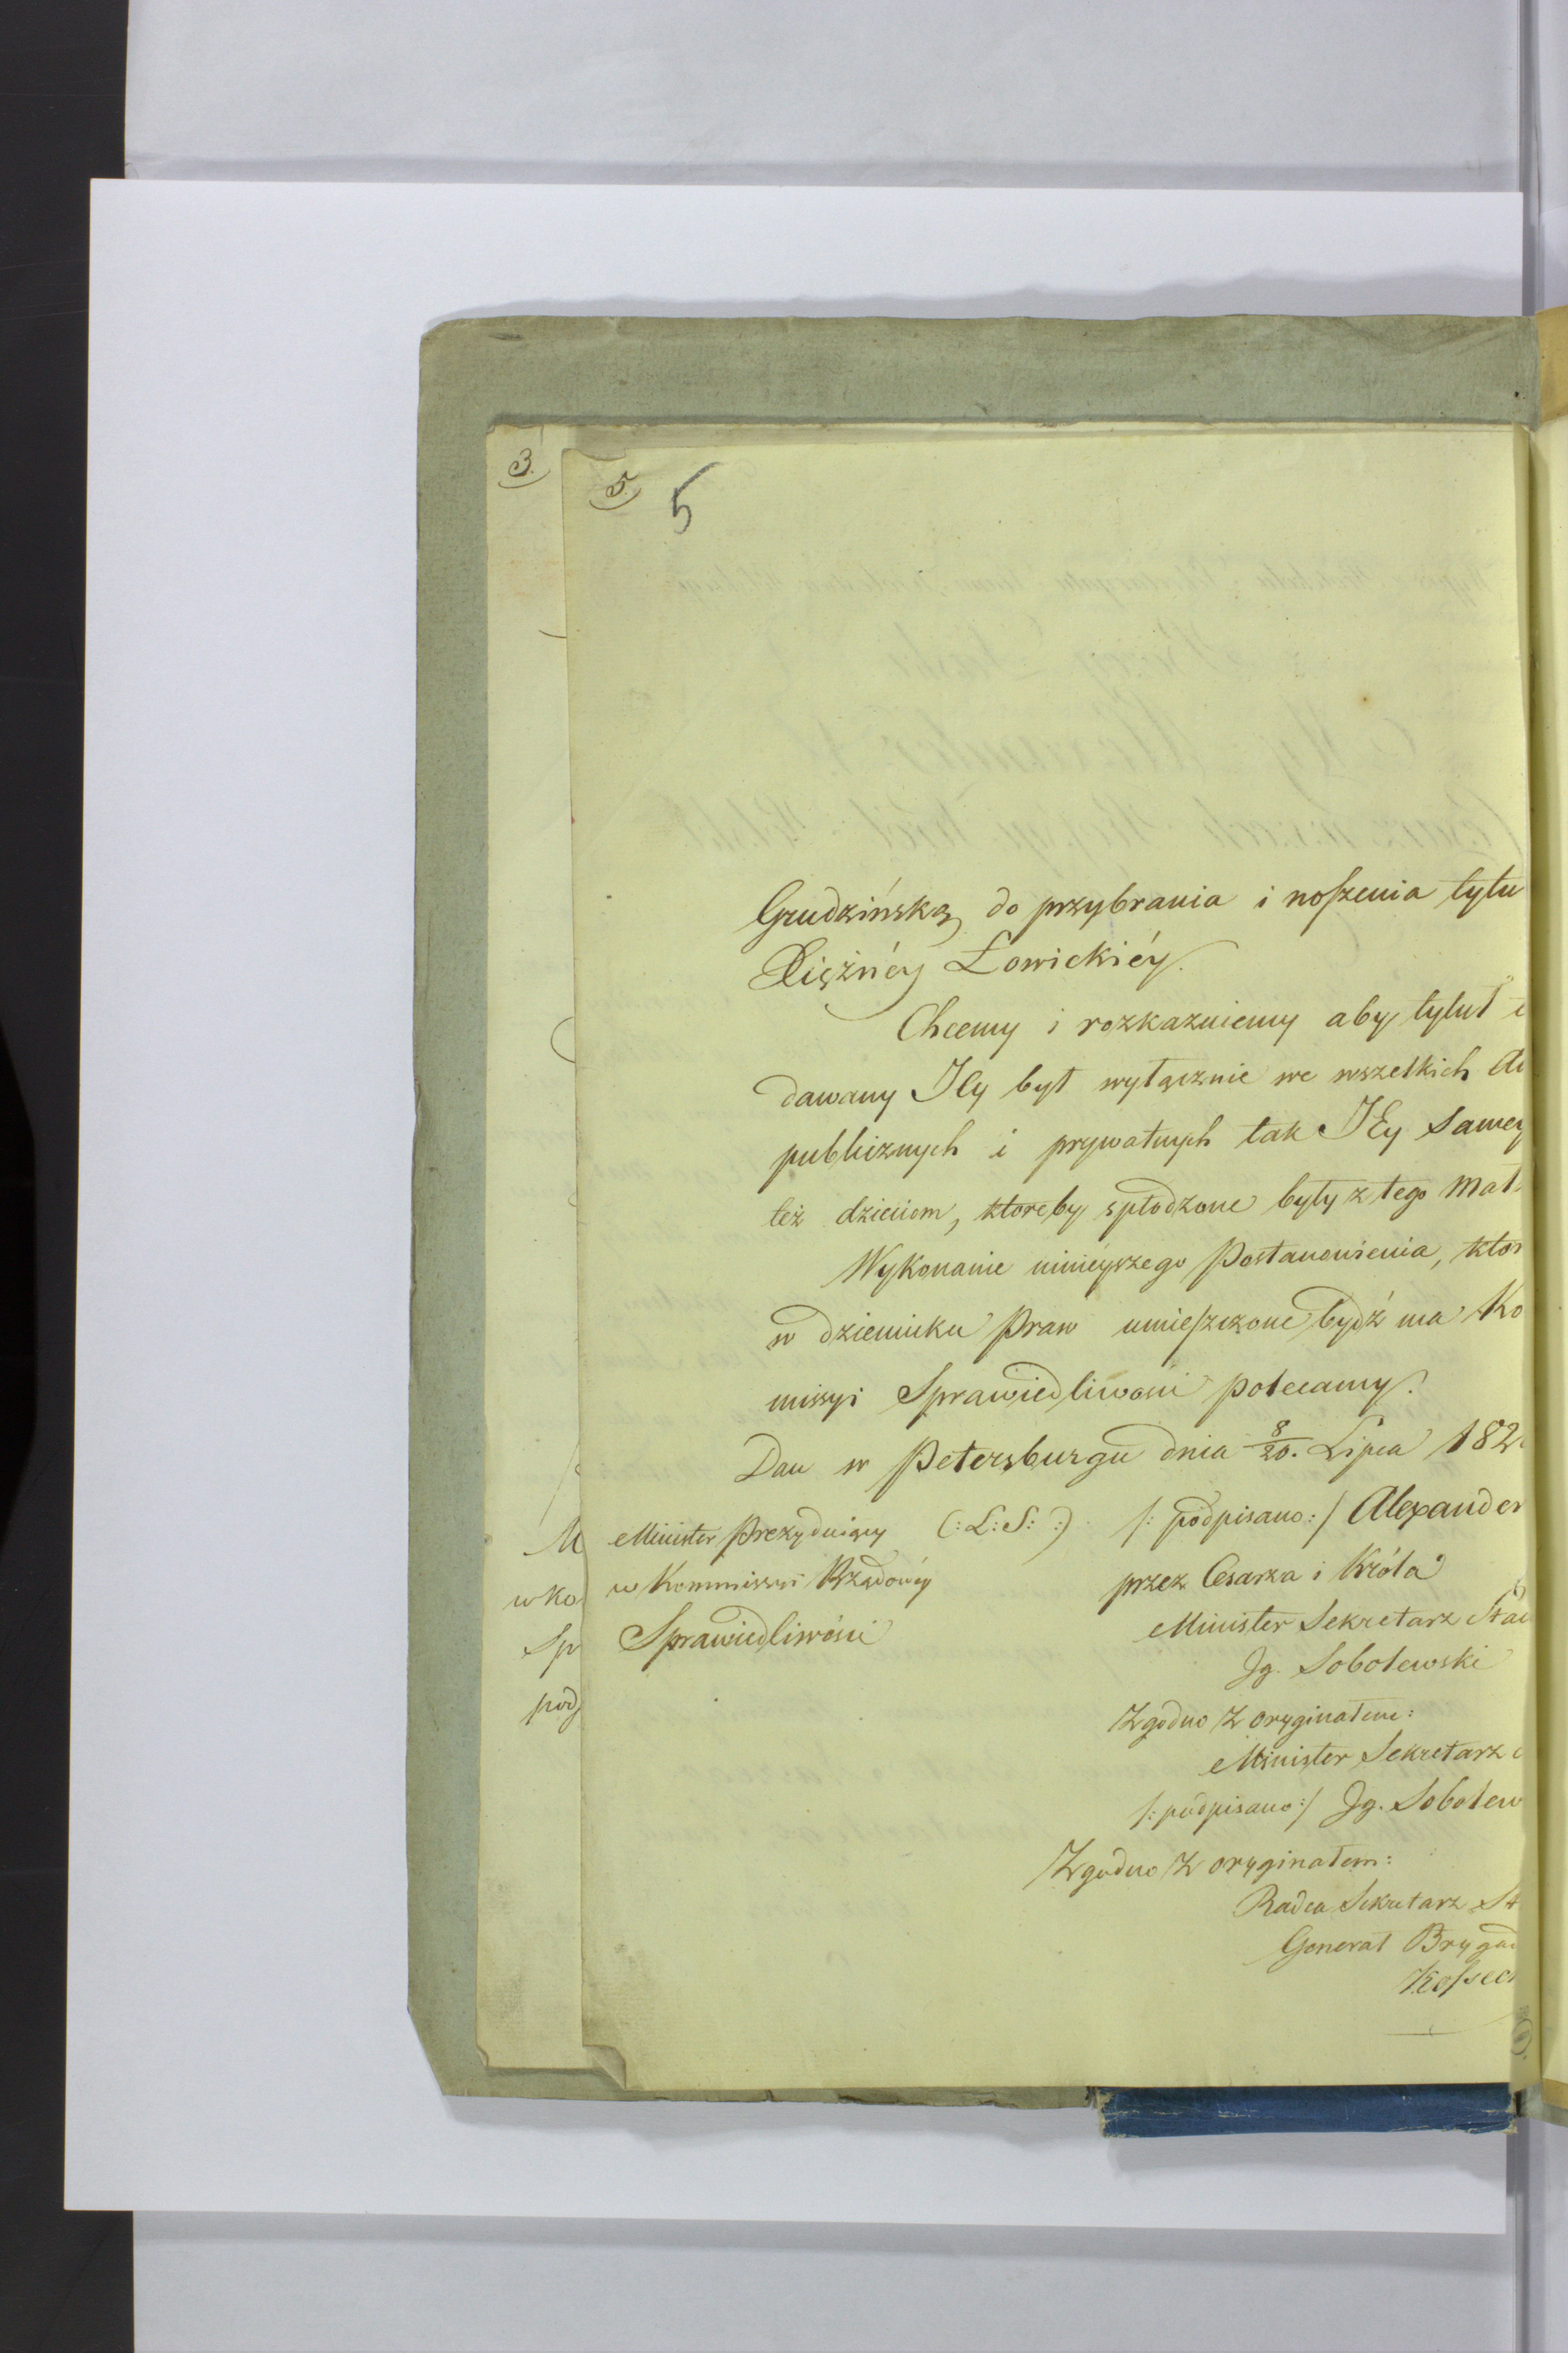 3.
5. 5
Grudzińską do przybrania i noszenia tytu
Xiężnéy Łowickiéy.
Chcemy i rozkazuiemy aby tytuł t
dawany JEy był wyłącznie we wszelkich Ak
publicznych i prywatnych tak JEy samey
też dzieciom, któreby spłodzone były z tego Mał-
Wykonanie ninieyszego Postanowienia, któr
w dzienniku Praw umieszczone bydź ma Ko
missyi Sprawiedliwości polecamy.
Dan w Petersburgu dnia 8/20. Lipca 182
Minister Prezyduiący (:L:S::) /:podpisano:/ Alexander
w Kommissyi Rządowéy przez Cesarza i Króla
Sprawiedliwości Minister Sekretarz Sta
Jg. Sobolewski
Zgodno z oryginałem:
Minister Sekretarz
/:podpisano:/ Jg. Sobolew
Zgodno z oryginałem:
Radca Sekretarz St
Generał Brygad
Kossec
M
w Ko
Sp
pod